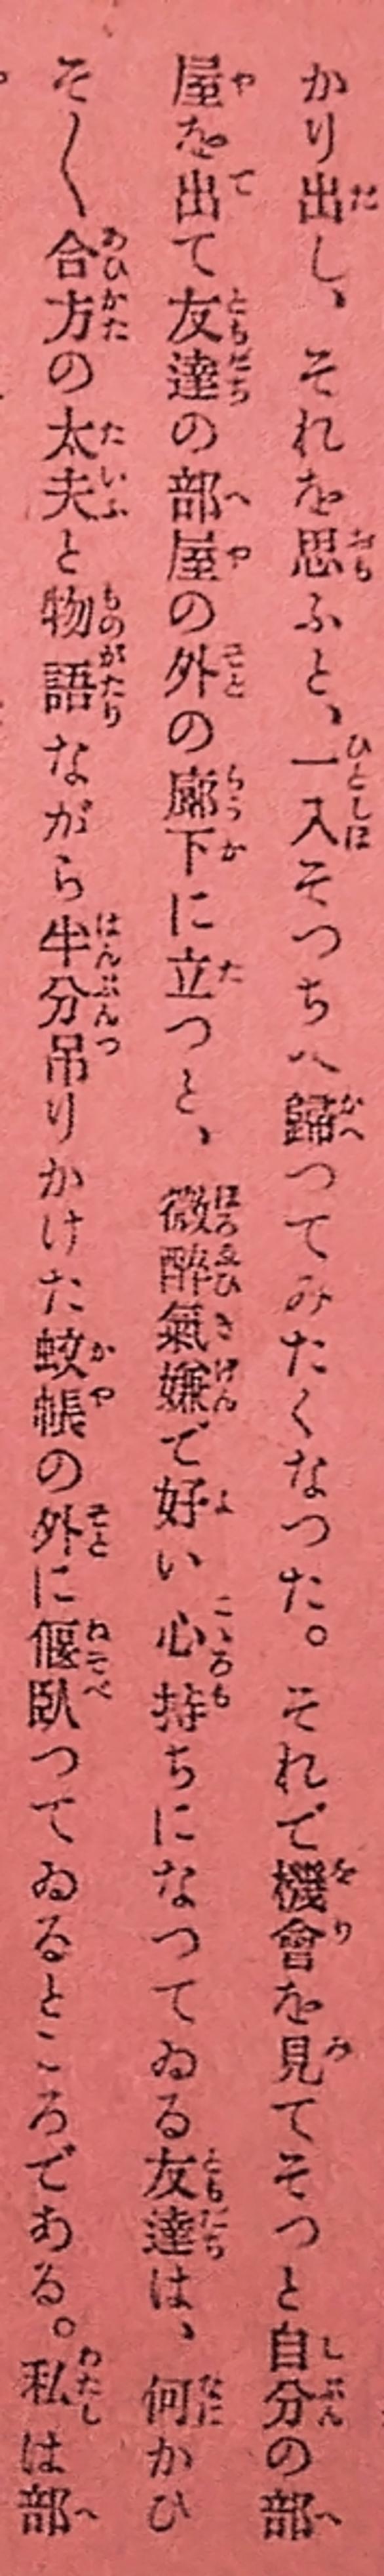 かり出し、それを思ふと、一入そつちへ歸つてみたくなつた。それで機會を見てそつと自分の部
屋を出て友達の部屋の外の廊下に立つと、微醉氣嫌で好い心持ちになつてゐる友達は、何かひ
そ〱合方の太夫と物語ながら半分吊りかけた蚊帳の外に偃臥つてゐるところである。私は部